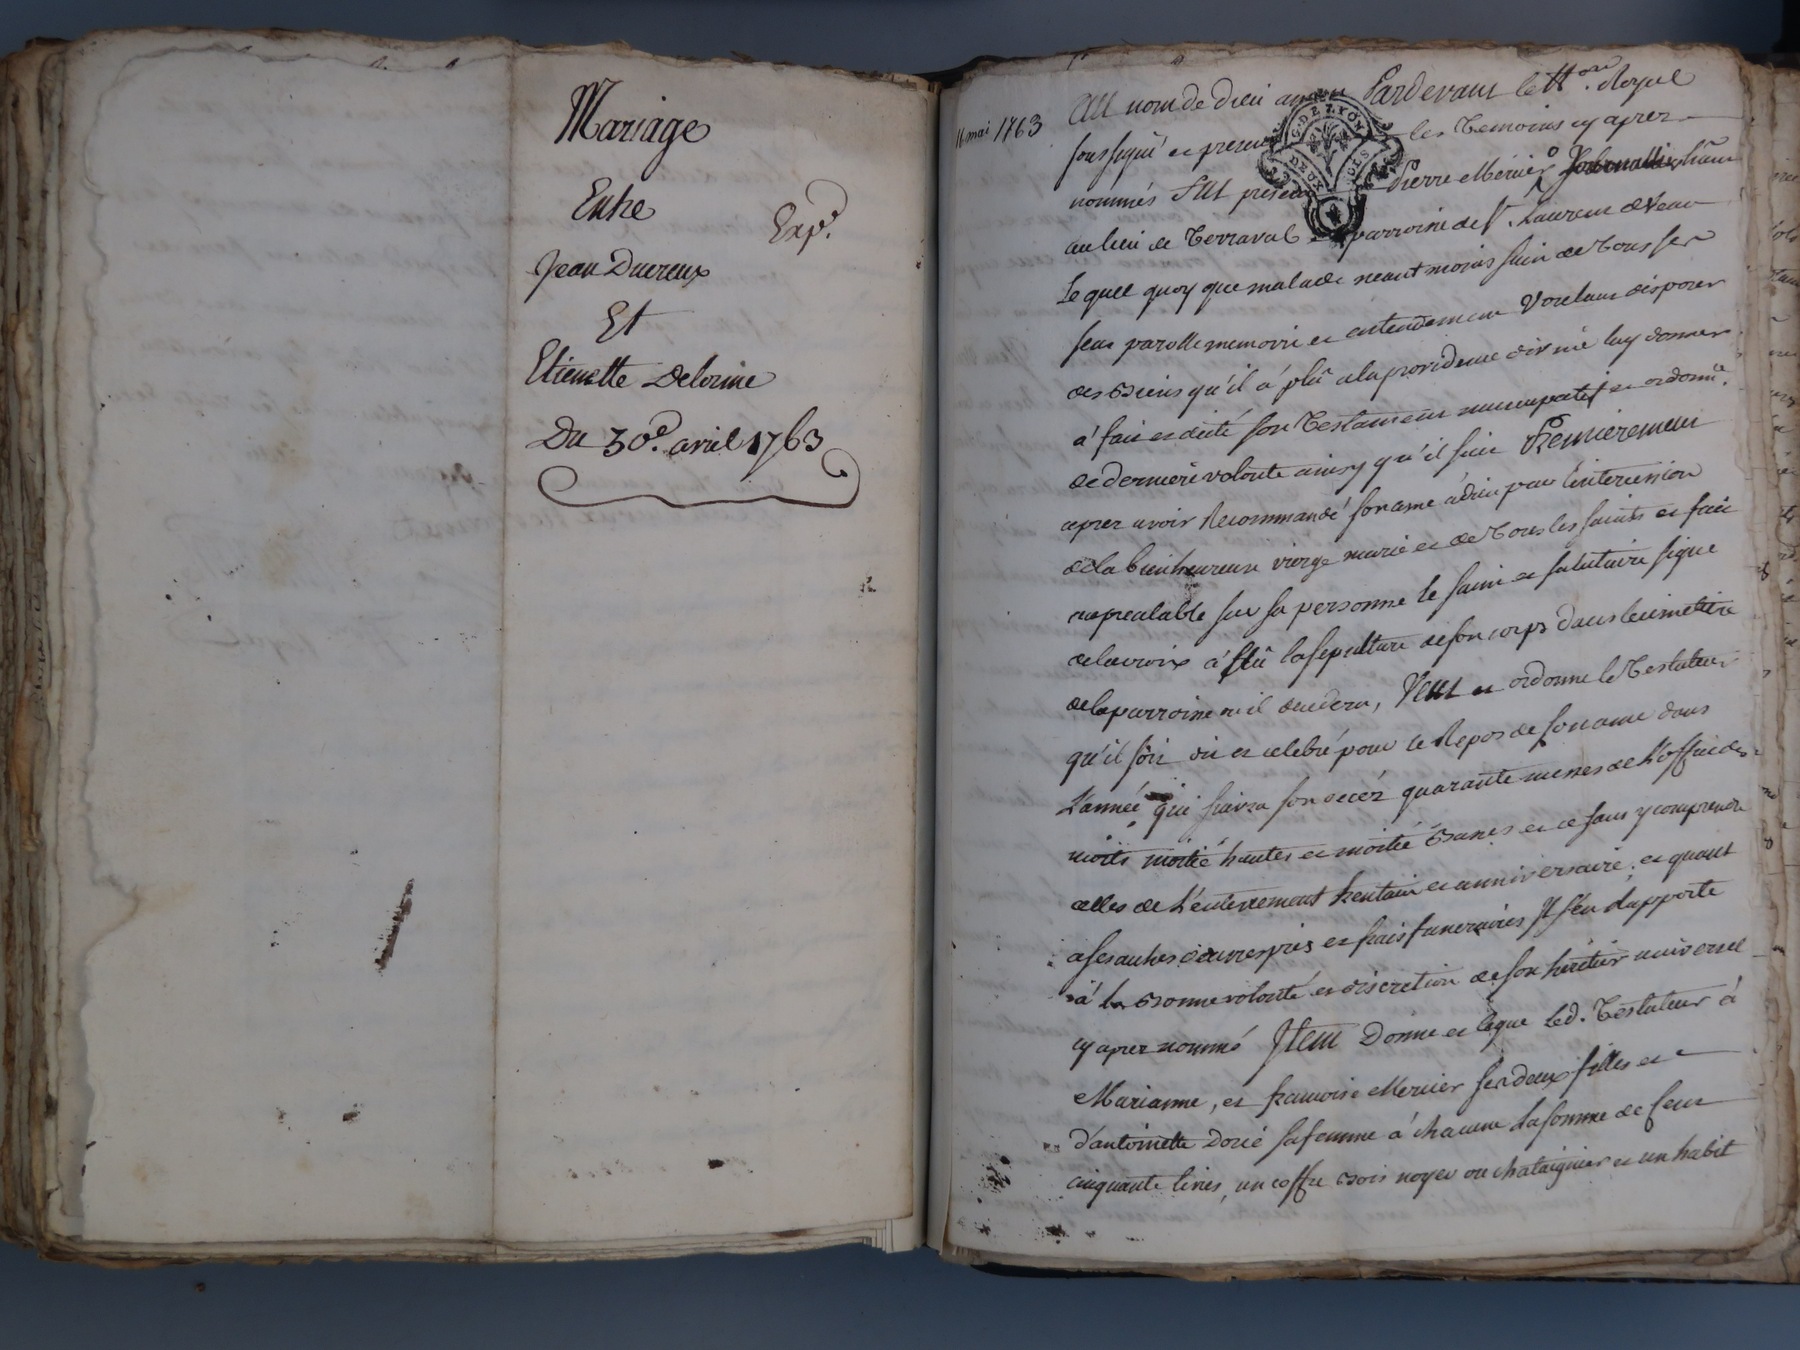 Mariage
Entre
Expé.
Jean Ducreux
Et
Etienette Delorme
Du 30e. avril 1763
16 mai 1763
Au nom de dieu amen Pardevant le Nore. Royal
soussigné et presents les Temoins cy apres
nommés Fut present Pierre Mercier
au lieu de Terraval parroisse de St. Laurent de Veau
Lequel quoy que malade neantmoins sain de tous ses
sens parolle memoire et entendement Voulant disposer
des Biens qu'il a plû a la providence divine luy donner
a fait et dicté son Testament nuncupatif et ordonnce.
de derniere volonté ainsy qu'il suit Premierement
apres avoir Recommandé son ame à dieu par l'intercession
de la bienheureuse vierge marie et de Tous les saints et fait
au prealable sur sa personne le saint et salutaire signe
de la croix a élû la sepulture de son corps dans le cimetiere
de la parroisse ou il decedera, Veut et ordonne le Testateur
qu'il soit dit et celebré pour le Repos de son ame dans
L'année qui suivra son decéz quarante messes de l'office des
morts moitié hautes et moitié Basses et ce sans y comprendre
celles de l'enterrement trentain et anniversaire, et quant
a ses autres oeuvres pies et frais funeraires Il s'en Rapporte
à la Bonne volonté et discretion de son héritier universel
cy apres nommé Item Donne et legue Led. Testateur à
Marianne, et francoise Mercier ses deux filles et
d'antoinette Dorié sa femme à chacune la somme de cent
cinquante livres, un coffre Bois noyer ou chataignier et un habit